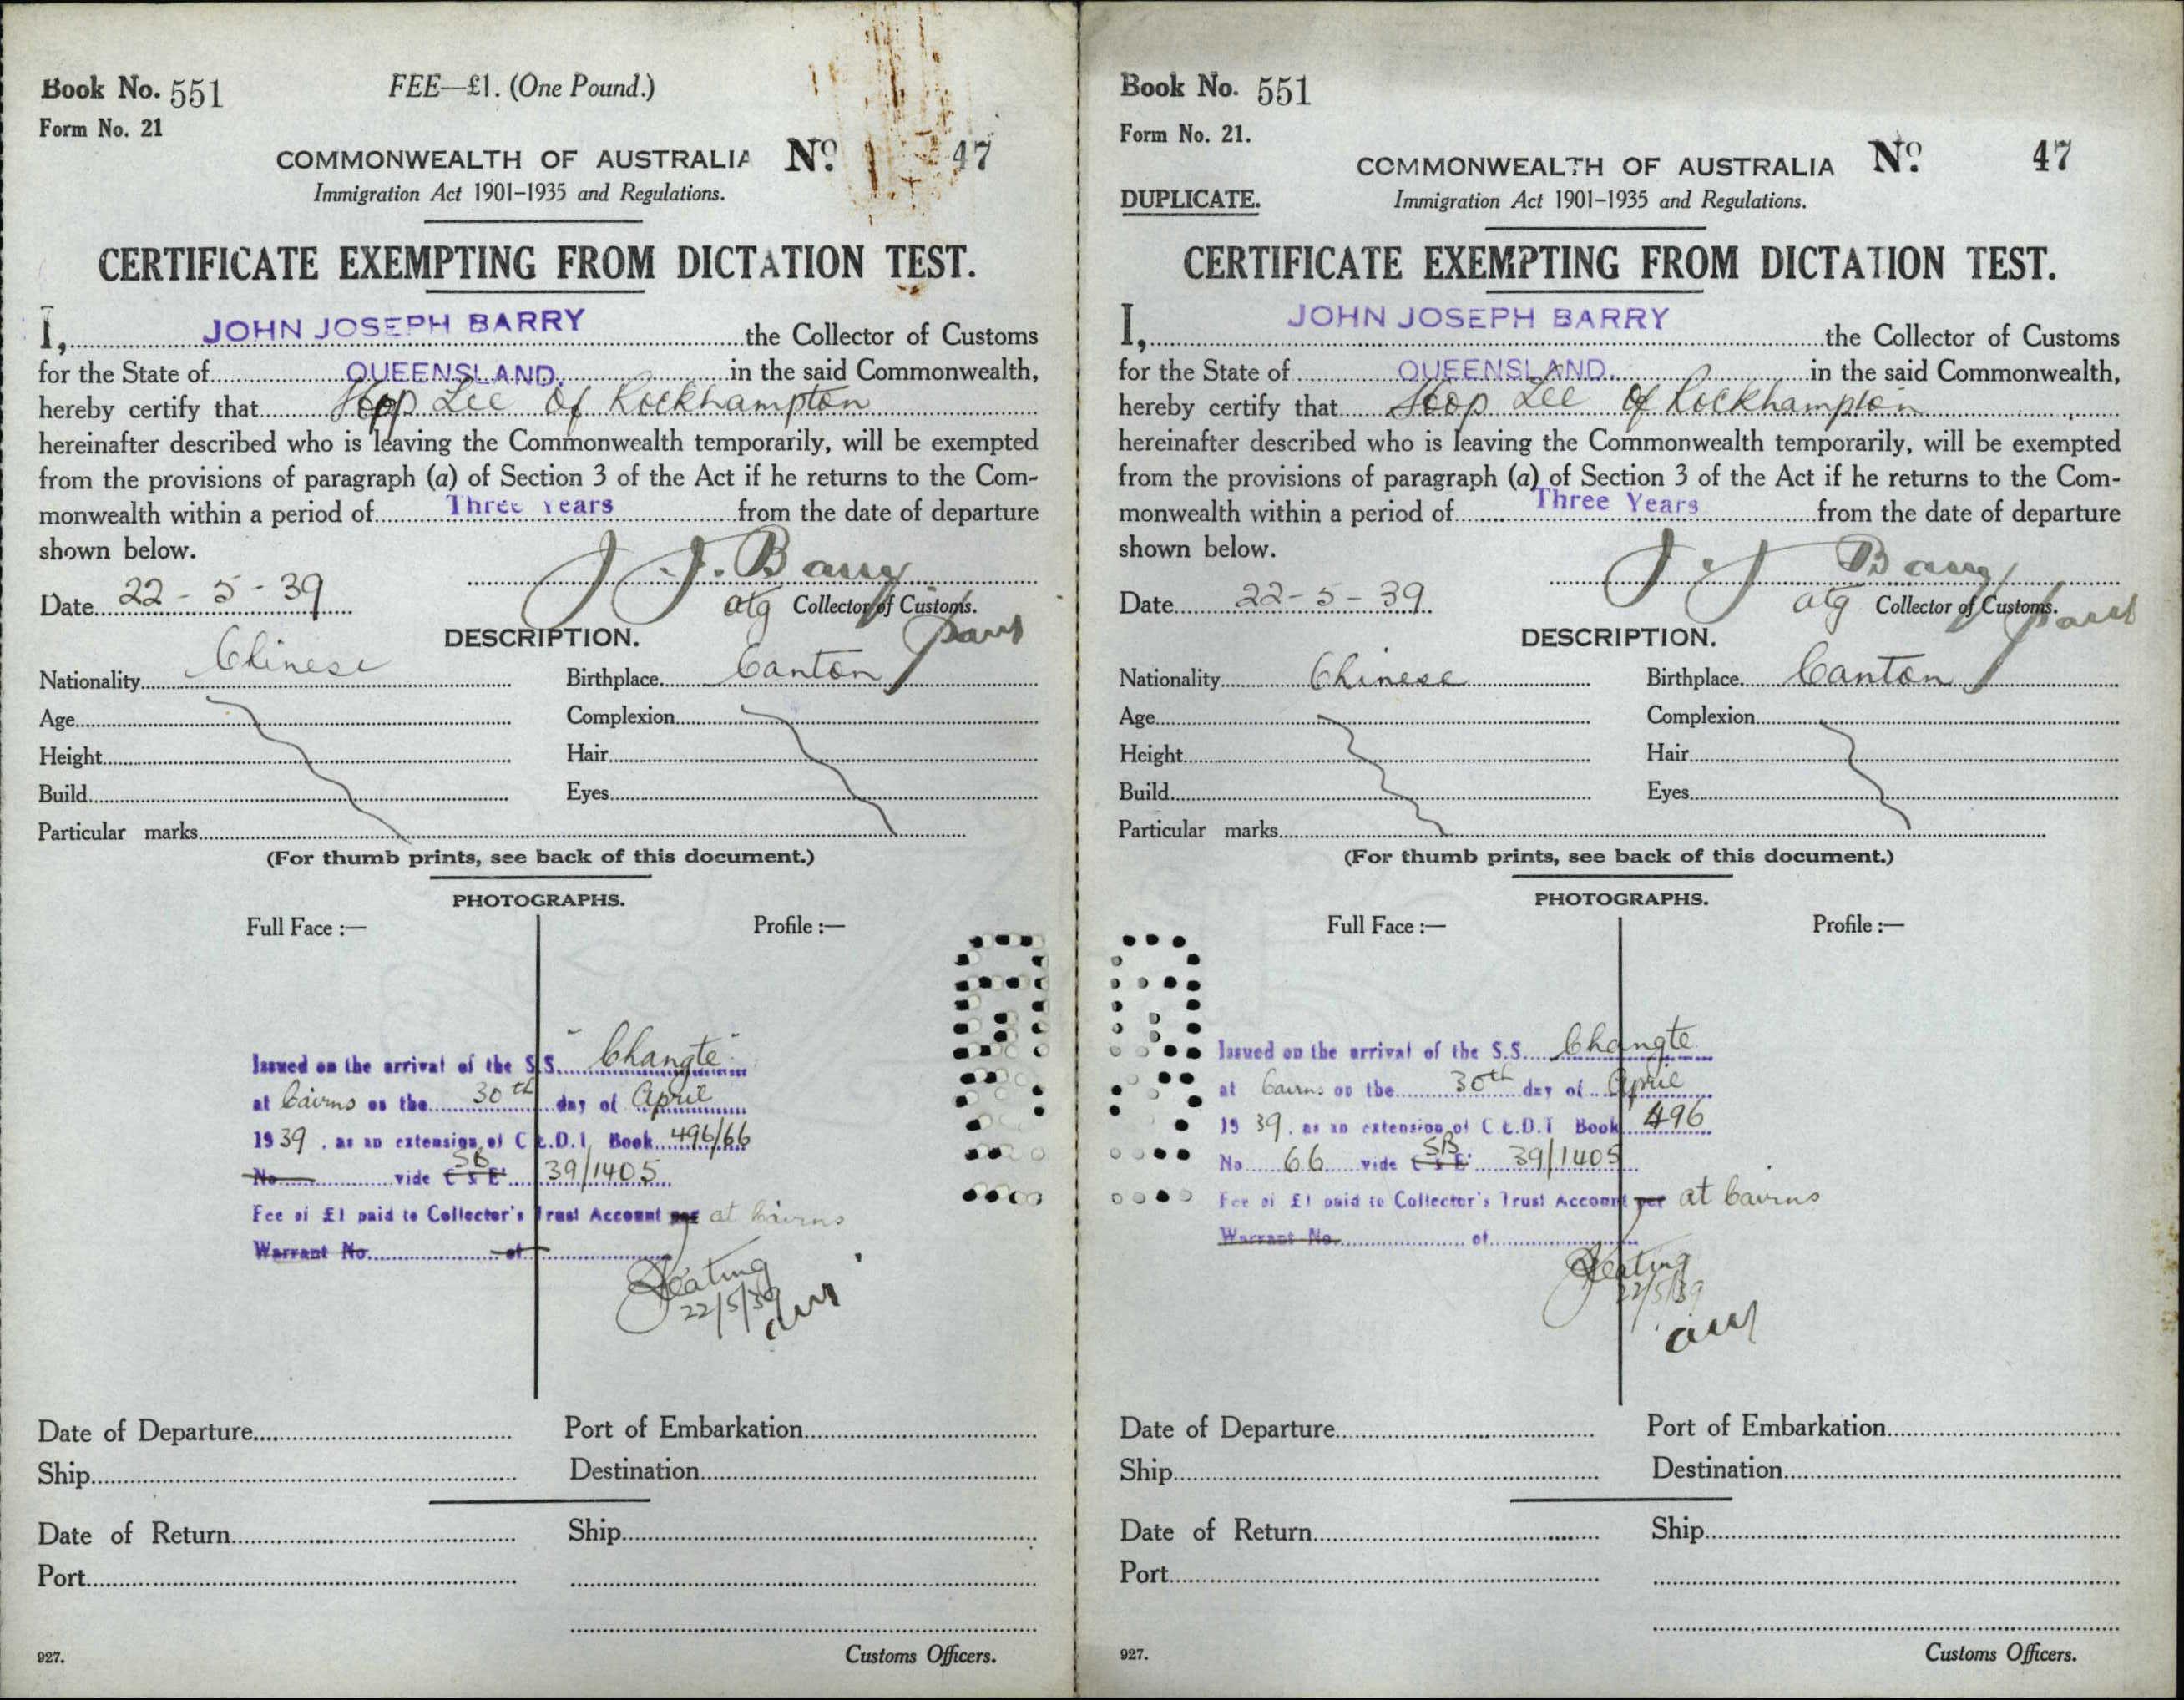 Book No. 551
FEE—£1. (One Pound.)
Form No. 21
COMMONWEALTH OF AUSTRALIA No. 47
Immigration Act 1901-1935 and Regulations.
CERTIFICATE EXEMPTING FROM DICTATION TEST.
I, JOHN JOSEPH BARRY the Collector of Customs
for the State of QUEENSLAND. in the said Commonwealth,
hereby certify that Hop Lee of Rockhampton
hereinafter described who is leaving the Commonwealth temporarily, will be exempted
from the provisions of paragraph (a) of Section 3 of the Act if he returns to the Com-
monwealth within a period of Three Years from the date of departure
shown below.
J. J. Barry
Date 22-5-39
atg Collector of Customs.
DESCRIPTION.
Nationality Chinese Birthplace Canton
Age Complexion
Height Hair
Build Eyes
Particular marks
(For thumb prints, see back of this document.)
PHOTOGRAPHS.
Full Face :— Profile :—
Issued on the arrival of the S.S. "Changte"
at Cairns on the 30th day of April
1939, as an extension of C.E.D.T. Book 496/66
No vide C & E SB 39/1405
Fee of £1 paid to Collector's Trust Account per at Cairns
Warrant No. of
Keating
22/5/39
Date of Departure Port of Embarkation
Ship Destination
Date of Return Ship
Port
927. Customs Officers.
Book No. 551
Form No. 21.
COMMONWEALTH OF AUSTRALIA No. 47
DUPLICATE. Immigration Act 1901-1935 and Regulations.
CERTIFICATE EXEMPTING FROM DICTATION TEST.
I, JOHN JOSEPH BARRY the Collector of Customs
for the State of QUEENSLAND. in the said Commonwealth,
hereby certify that Hoop Lee of Rockhampton
hereinafter described who is leaving the Commonwealth temporarily, will be exempted
from the provisions of paragraph (a) of Section 3 of the Act if he returns to the Com-
monwealth within a period of Three Years from the date of departure
shown below.
J J Barry
Date 22-5-39.
atg Collector of Customs.
DESCRIPTION.
Nationality Chinese Birthplace Canton
Age Complexion
Height Hair
Build Eyes
Particular marks
(For thumb prints, see back of this document.)
PHOTOGRAPHS.
Full Face :— Profile :—
Issued on the arrival of the S.S. Changte
at Cairns on the 30th day of April
1939, as an extension of C.E.D.T Book 496
No 66 vide C & E SB 39/1405
Fee of £1 paid to Collector's Trust Account per at Cairns
Warrant No. of
Keating
22/5/39
Date of Departure Port of Embarkation
Ship Destination
Date of Return Ship
Port
927. Customs Officers.